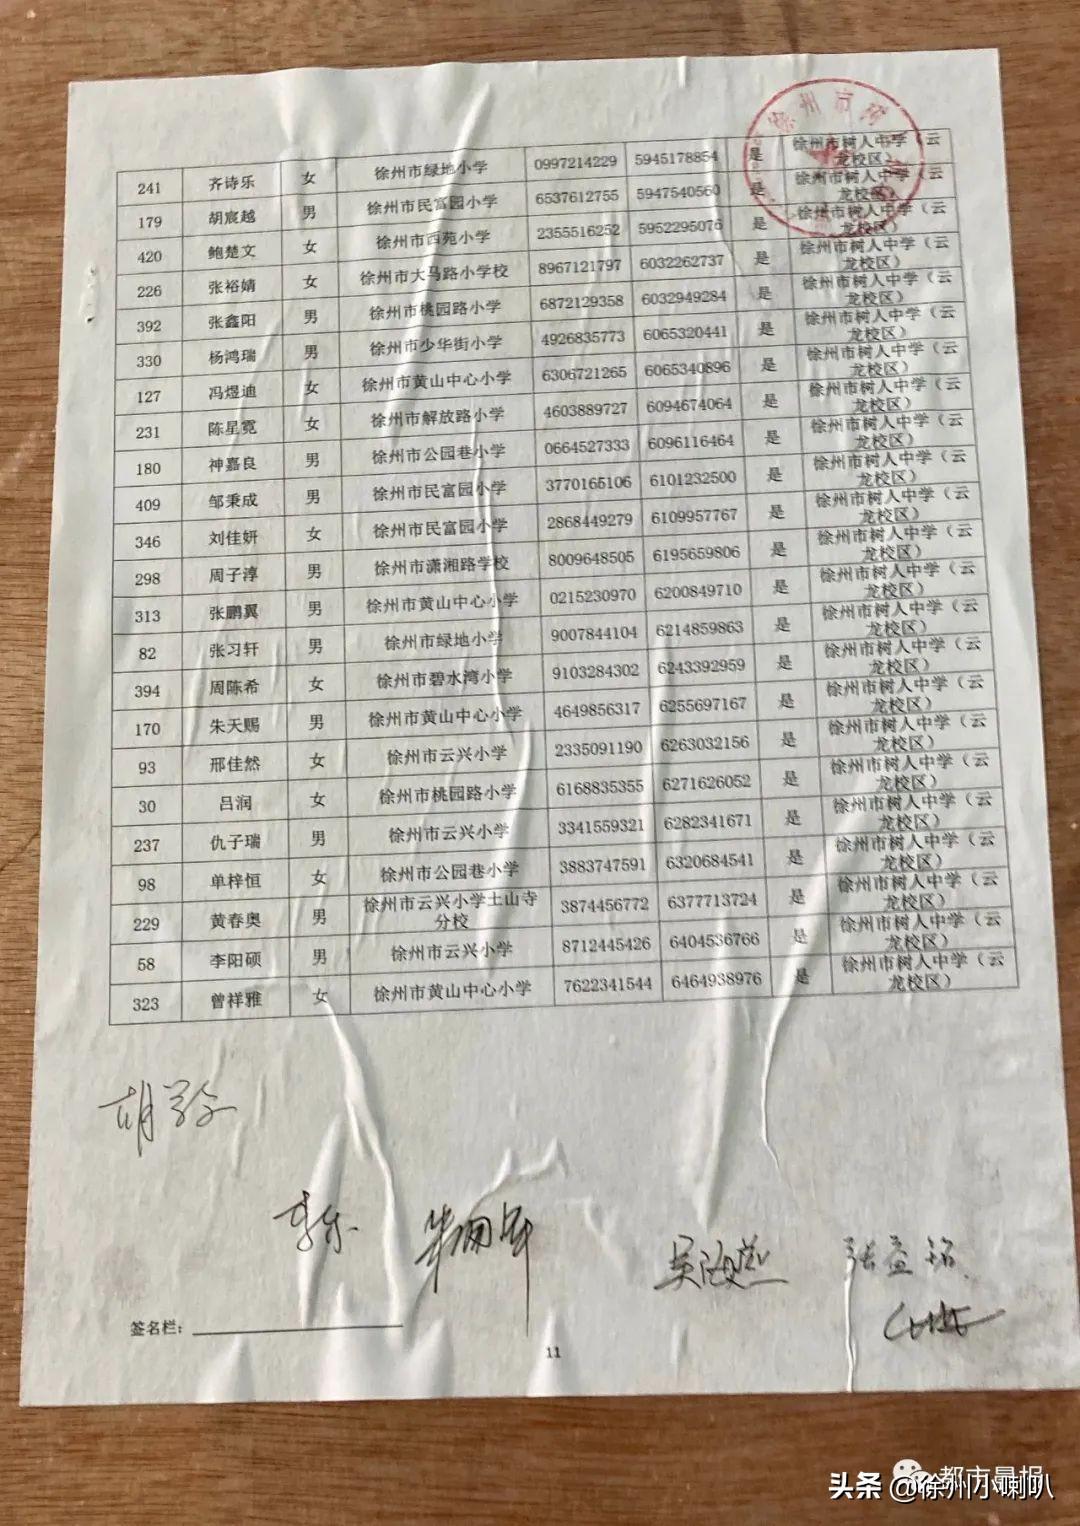 徐州市树
241 齐诗乐 女 徐州市绿地小学 0997214229 5945178854 是 徐州市树人中学(云龙校区)
179 胡宸越 男 徐州市民富园小学 6537612755 5947540560 是 徐州市树人中学(云龙校区)
420 鲍楚文 女 徐州市西苑小学 2355516252 5952295076 是 徐州市树人中学(云龙校区)
226 张裕婧 女 徐州市大马路小学校 8967121797 6032262737 是 徐州市树人中学(云龙校区)
392 张鑫阳 男 徐州市桃园路小学 6872129358 6032949284 是 徐州市树人中学(云龙校区)
330 杨鸿瑞 男 徐州市少华街小学 4926835773 6065320441 是 徐州市树人中学(云龙校区)
127 冯煜迪 女 徐州市黄山中心小学 6306721265 6065340896 是 徐州市树人中学(云龙校区)
231 陈星霓 女 徐州市解放路小学 4603889727 6094674064 是 徐州市树人中学(云龙校区)
180 神嘉良 男 徐州市公园巷小学 0664527333 6096116464 是 徐州市树人中学(云龙校区)
409 邹秉成 男 徐州市民富园小学 3770165106 6101232500 是 徐州市树人中学(云龙校区)
346 刘佳妍 女 徐州市民富园小学 2868449279 6109957767 是 徐州市树人中学(云龙校区)
298 周子淳 男 徐州市潇湘路学校 8009648505 6195659806 是 徐州市树人中学(云龙校区)
313 张鹏翼 男 徐州市黄山中心小学 0215230970 6200849710 是 徐州市树人中学(云龙校区)
82 张习轩 男 徐州市绿地小学 9007844104 6214859863 是 徐州市树人中学(云龙校区)
394 周陈希 女 徐州市碧水湾小学 9103284302 6243392959 是 徐州市树人中学(云龙校区)
170 朱天赐 男 徐州市黄山中心小学 4649856317 6255697167 是 徐州市树人中学(云龙校区)
93 邢佳然 女 徐州市云兴小学 2335091190 6263032156 是 徐州市树人中学(云龙校区)
30 吕润 女 徐州市桃园路小学 6168835355 6271626052 是 徐州市树人中学(云龙校区)
237 仇子瑞 男 徐州市云兴小学 3341559321 6282341671 是 徐州市树人中学(云龙校区)
98 单梓恒 女 徐州市公园巷小学 3883747591 6320684541 是 徐州市树人中学(云龙校区)
229 黄春奥 男 徐州市云兴小学土山寺分校 3874456772 6377713724 是 徐州市树人中学(云龙校区)
58 李阳硕 男 徐州市云兴小学 8712445426 6404536766 是 徐州市树人中学(云龙校区)
323 曾祥雅 女 徐州市黄山中心小学 7622341544 6464938976 是 徐州市树人中学(云龙校区)
吴海燕 张益铭
签名栏:
11
都市晨报
头条 @徐州小喇叭